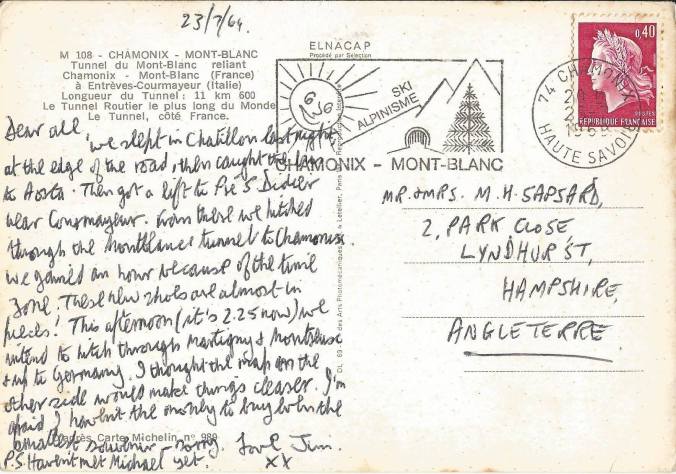 23/7/69.
M 108 - CHAMONIX - MONT-BLANC
Tunnel du Mont-Blanc reliant
Chamonix - Mont-Blanc (France)
à Entrèves-Courmayeur (Italie)
Longueur du Tunnel : 11 km 600
Le Tunnel Routier le plus long du Monde
Le Tunnel, côté France.
ELNACAP
Procédé par Sélection
SKI
ALPINISME
CHAMONIX - MONT-BLANC
74 CHAMONIX
HAUTE SAVOIE
0,40
POSTES
REPUBLIQUE FRANÇAISE
Dear all,
we slept in Chatillon last night
at the edge of the road, then caught the bus
to Aosta. Then got a lift to Pré S Didier
near Courmayeur. From there we hitched
through the Montblanc tunnel to Chamonix.
We gained an hour because of the time
zone. These new shoes are almost in
pieces! This afternoon (it's 2.25 now) we
intend to hitch through Martigny & Montreux
& up to Germany. I thought the map on the
other side would make things clearer. I'm
afraid I haven't the money to buy even the
smallest souvenir - sorry. Love Jim.
P.S. Havent met Michael yet. XX
d'après Carte Michelin n° 989
MR. & MRS. M. H. SAPSARD,
2, PARK CLOSE
LYNDHURST,
HAMPSHIRE,
ANGLETERRE